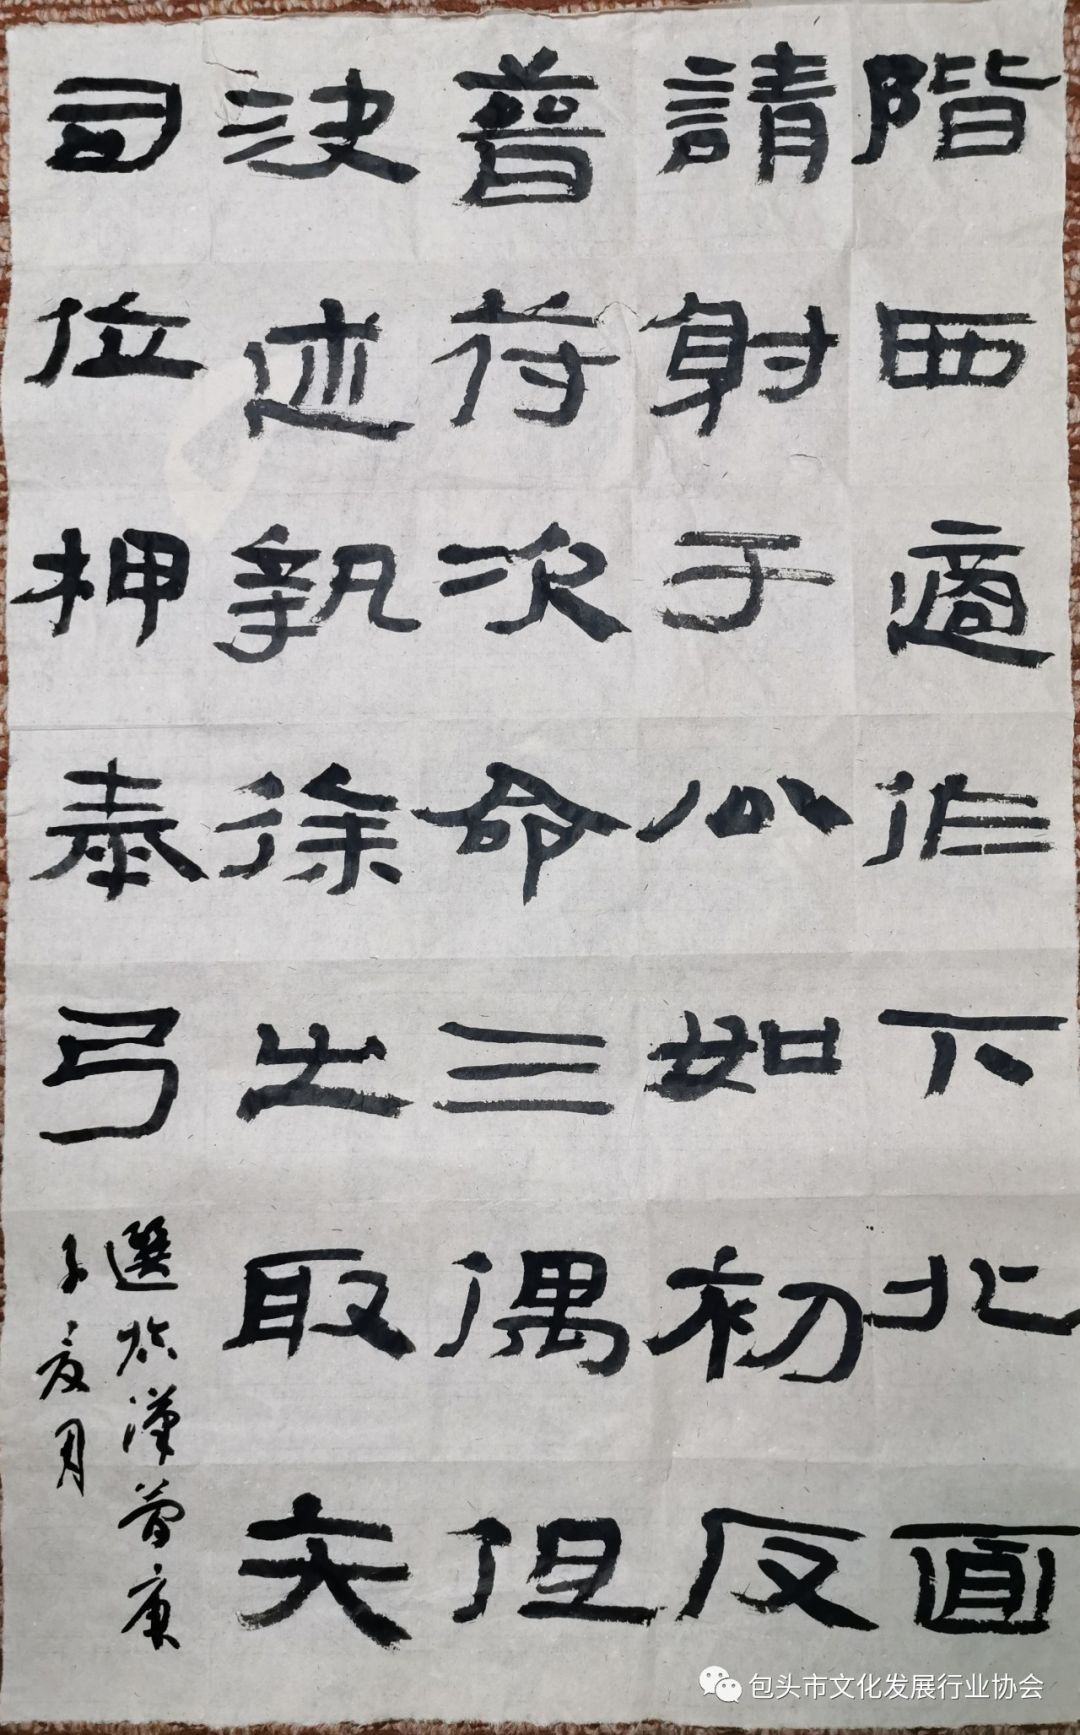 階西適作下北面
請射于公如初反
普符次命三偶但
決述執徐之取矢
司位押奉弓
選於漢簡庚
子夏月
包头市文化发展行业协会